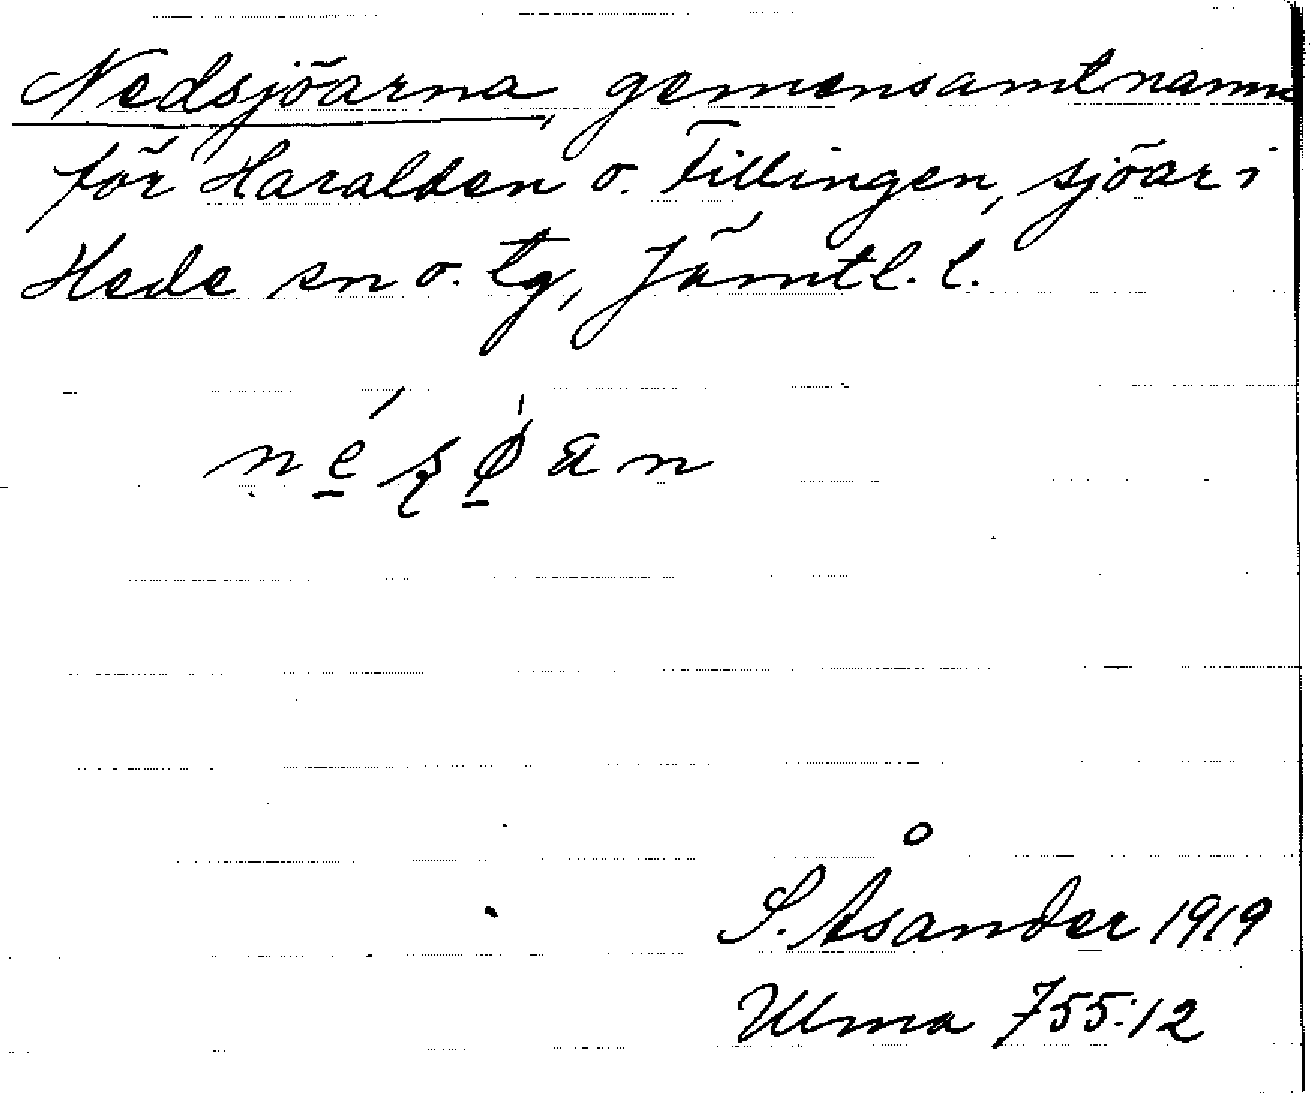 Nedsjöarna, gemensamt namn
för Haralden o. Tillingen, sjöar i
Hede sn o. tg, Jämtl. l.
S. Åsander 1919
Ulma 755:12